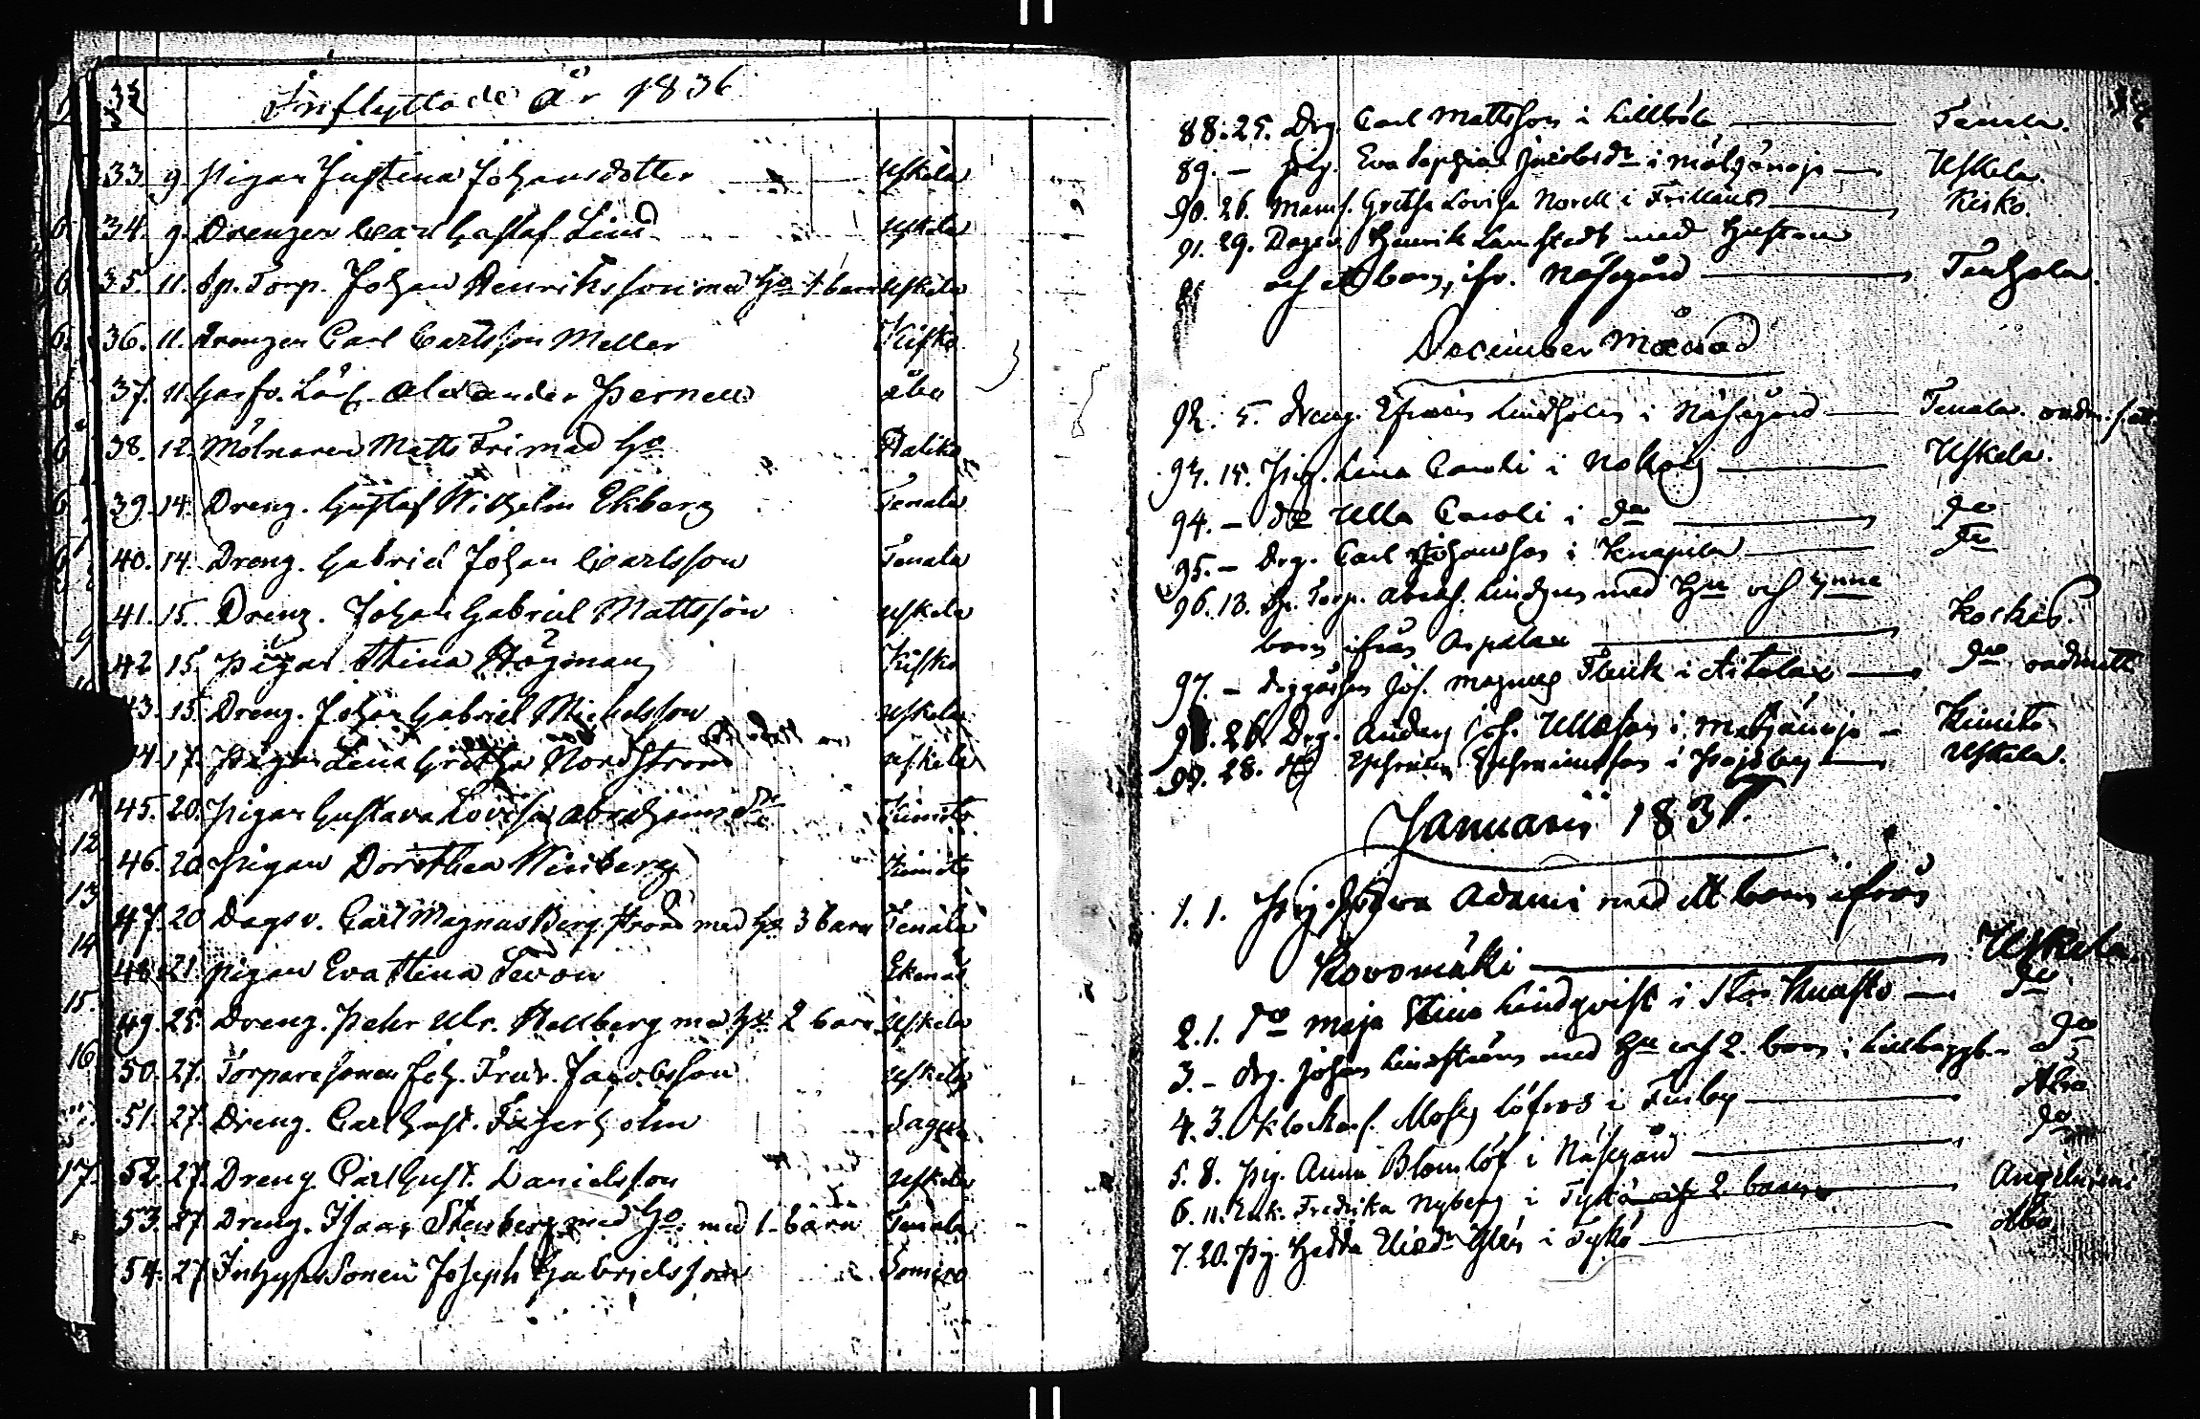 33
Inflyttade År 1836
33 9 Pigan Justina Johansdotter Uskela
34. 9. Drengen Carl Gustaf Lind Uskela
35. 11. Sp. Torp. Johan Henriksson med Ho 1 barn Uskela
36. 11. Drengen Carl Carlsson Meller Kisko
37. 11. Alexander Pernell Åbo
38. 12. Mölnaren Matts Fri med Ho Haliko
39. 14. Dreng. Gustaf Wilhelm Ekberg Tenala
40. 14. Dreng. Gabriel Johan Carlsson Tenala
41. 15. Dreng. Johan Gabriel Mattsson Uskela
42 15. Pigan Stina Högman Kisko
43. 15. Dreng. Johan Gabriel Michelsson Uskela
44. 17. Pigan Lena Gretha Nordström Uskela
45. 20. Pigan Gustava Lovisa Abrahamsdr Kimito
46. 20 Pigan Dorothea Winberg Kimito
47. 20 Dagsv. Carl Magnus Bergström med Ho 3 barn Tenala
48. 21. Pigan Eva Stina Sevon Ekenäs
49. 25. Dreng. Pehr Ulr. Hallberg med Ho 2 barn Uskela
50. 27. Torparesonen Joh. Fredr. Jacobsson Uskela
51. 27. Dreng. Carl Gust. Fagerholm Sagu
52. 27. Dreng. Carl Gust. Danielsson Uskela
53. 27 Dreng. Isaac Stenberg med Ho. med 1 barn Tenala
54. 27 Inhysessonen Joseph Gabrielsson Somero
88. 25. Drg. Carl Mattsson i Lillböle Tenala.
89. – Pig. Eva Sophia Jacobsdr i Uskela.
90. 26. Mams. Gretha Lovisa Norell i Frilund Kisko.
91. 29. Dagsv. Henrik Lamstedt med Hustru
och ett barn, ifr. Näsegård Tenhola.
December Månad
92. 5. Dreng. Efraim Lindholm i Näsegård Tenala.
93. 15. Pig. Lena Caroli i Uskela.
94. – do Ulla Caroli i do do
95. – Drg. Carl Johansson i Knapila do
96. 13. Sp. Torp. Abrah. Lindgren med Hu och
barn ifrån Arpalax Koskis.
97. – Joh. Magnus Flinck i do
98. 26. Drg. Anders Joh. Ullasson i Kimito
99. 28. do Ephraim Ephraimsson i Pojoby Uskela.
Januarii 1837.
1. 1. Pig. Adami med ett barn ifrån
Kovomäki Uskela.
2. 1. do Maja Stina Lindqvist i Stor do
3. – Drg. Johan Lindström med Hu och 2. barn i do
4. 3. Klockars. Moses Löfros i Finby Åbo
5. 8. Pig. Anna Blomlöf i Näsegård do
6. 11. Enk. Fredrika Nyberg i Tykö 2 barn Angelniemi
7. 20. Pig. Hedda i Tykö Åbo